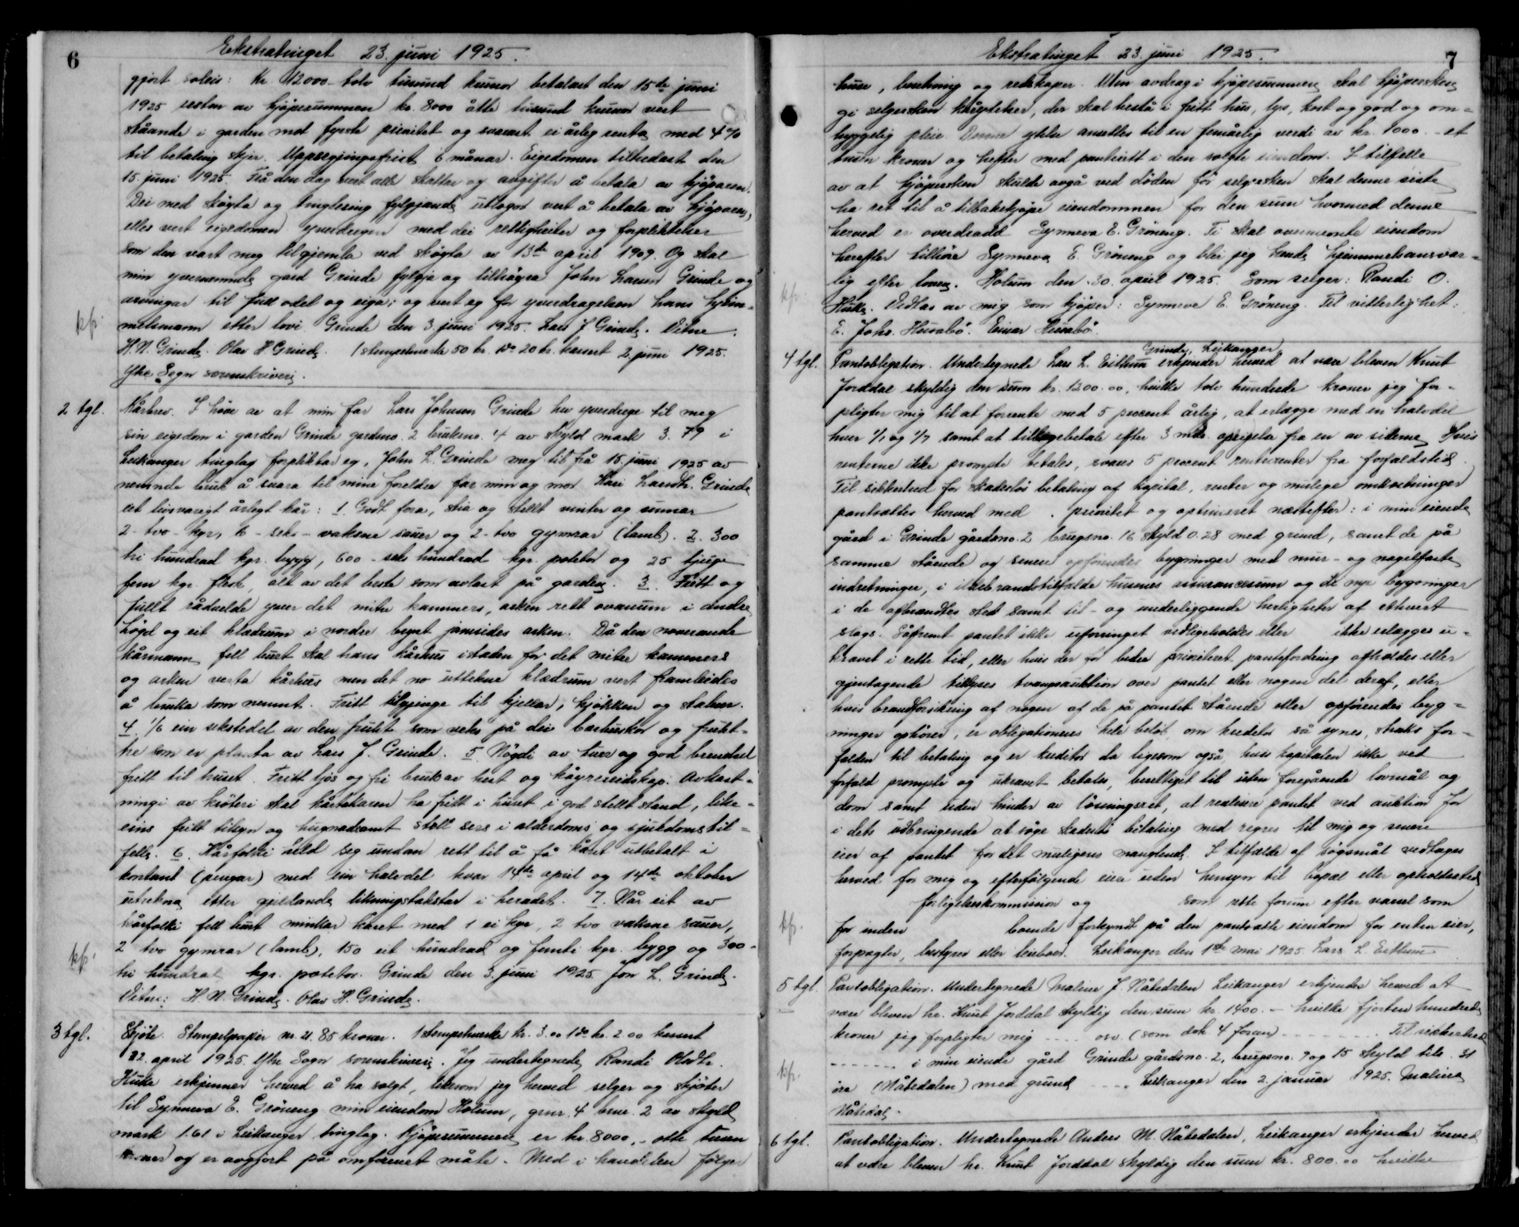 6
Ekstratinget 23. juni 1925.
gjort soleis: Kr. 12000 tolv tusund krunor betalast den 15de juni
1925 resten av kjøpesummen kr. 8000 åtte tusund krunor vert
ståande i garden mot fyrste prioritet og svarast ei årleg renta med 4%
til betaling skjer. Uppsegjingsfrist 6 månar. Eigedomen tiltredast den
15 juni 1925. Frå den dag vert alle skatter og avgifter å betala av kjøparen.
Dei med skøyta og tinglesing fylgjande utlogor vert å betala av kjøparen,
elles vert eigedomen yverdregen med dei rettigheiter og forpliktelser
som den vart meg tilgjemla ved skøyte av 13de april 1909. Og skal
min yvernemnde gard Grinde fylgja og tilhøyra John Larsen Grinde og
arvingar til full odel og eiga; og vert eg for yverdragelsen hans hejm-
melsmann etter lovi. Grinde den 3. juni 1925. Lars J. Grinde. Vitne:
H. N. Grinde. Olav H. Grinde. 1 stempelmerke 50 kr. 1 do 20 kr. kassert 2 juni 1925.
Ytre Sogn sorenskriveri.
kp.
2 tgl.
Kårbrev. I høve av at min far Lars Johnsen Grinde hev yverdrege til meg
sin eigedom i garden Grinde gardsno. 2 bruksno. 4 av skyld mark 3.79 i
Leikanger tinglag forpliktar eg, John L. Grinde meg til frå 15 juni 1925 av
nemnde bruk å svara til mine foreldre far min og mor Kari Larsdtr. Grinde
eit livsvarigt årlegt kår: 1. Godt fora, stia og stellt vinter og sumar
2 - tvo - kyr, 6 - seks - vaksne sauer og 2 - tvo gymrar (lamb). 2. 300
tri hundrad kgr. bygg, 600 - seks hundrad - kgr. poteter og 25 tjuge
fem kgr. flesk, alt av det beste som avlast på garden. 3. Fritt og
fullt rådvelde yver det mitre kammers, arken rett ovanum i andre
høgd og eit klædrum i nordre bygt jamsides arken. Då den noverande
kårmann fell burt skal hans kårhus istaden for det mitre kammers
og arken verta kårhus men det no uttekne klædrum vert framleides
å bruka som nemnt. Fritt tilgjenge til kjellar, kjøkken og stabur.
4. 1/6 ein sekstedel av den frukt som veks på dei bærbuskor og frukt-
tre som er planta av Lars J. Grinde. 5. Nøgdi av turr og god brendsel
fritt til huset. Fritt ljos og fri bruk av hest og køyrereidskap. Avkast-
ningi av krøteri skal kårtakaren ha fritt i huset i god stelt stand, like-
eins fritt tilsyn og hugnadsamt stell sers i alderdoms og sjukdomstil-
felle. 6. Kårfolki held seg undan rett til å få kåret utbetalt i
kontant (pengar) med ein halvdel kvar 14de april og 14de oktober
utrekna etter gjeldande likningstakstar i heradet. 7. Når eit av
kårfolki fell burt minkar kåret med 1 ei kyr, 2 tvo vaksne sauer,
2 tvo gymrar (lamb), 150 eit hundrad og femti kgr. bygg og 300 -
tri hundrat kgr. poteter. Grinde den 3. juni 1925. Jon L. Grinde.
Vitne: H. N. Grinde. Olav H. Grinde.
kp.
3 tgl.
Skjøte. Stempelpapir nr. 4. 85 kroner. 1 stempelmerke kr. 3.00 1 do kr. 2.00 kassert
22 april 1925 Ytre Sogn sorenskriveri. Jeg undertegnede Randi Olsdtr.
Huke erkjenner herved å ha solgt, likesom jeg herved selger og skjøter
til Synneva E. Grøneng min eiendom Hotum, gnr. 4 brnr. 2 av skyld
mark 1.61 i Leikanger tinglag. Kjøpesummen er kr. 8000.- otte tusen
kroner og er avgjort på omforenet måte. Med i handelen følger
7
Ekstratinget 23. juni 1925.
huser, besetning og redskaper. Uten avdrag i kjøpesummen skal kjøpersken
gi selgersken kårytelser, der skal bestå i fritt hus, lys, kost og god og om-
hyggelig pleie. Denne ytelse ansettes til en femårlig verdi av kr. 1000.- et
tusen kroner og hefter med panterett i den solgte eiendom. I tilfelle
av at kjøpersken skulde avgå ved døden før selgersken skal denne siste
ha ret til å tilbakekjøpe eiendommen for den sum hvormed denne
herved er overdradd Synneva E. Grøneng. Ti skal ovennevnte eiendom
herefter tilhøre Synneva E. Grøneng og blir jeg hende hjemmelsansvar-
lig efter loven. Hotum den 30. april 1925. Som selger: Randi O.
Huke. Vedtas av mig som kjøper: Synneva E. Grøneng. Til vitterlighet:
E. Johs. Husabø. Einar Husabø.
kp.
4 tgl.
Grinde, Leikanger
Pantobligation. Undertegnede Lars L. Eithun erkjender herved at være bleven Knut
Jorddal skyldig den sum kr. 1200.00, hvilke tolv hundrede kroner jeg for-
pligter mig til at forrente med 5 procent årlig, at erlægge med en halvdel
hver 1/1 og 1/7 samt at tilbagebetale efter 3 mdrs. opsigelse fra en av siderne. Hvis
renterne ikke prompte betales, svares 5 procent renters rente fra forfaldstid.
Til sikkerhed for skadesløs betaling af kapital, renter og mulige omkostninger
pantsættes herved med . prioritet og oprinneret næstefter: i min eiende
gård i Grinde gårdsno. 2 brugsno. 16 skyld 0.28 med grund, samt de på
samme stående og senere opførendes bygninger med mur- og nagelfaste
indretninger, i ildebrandstilfælde husenes assurancesum og de nye bygninger
i de afbrændtes sted samt til- og underliggende herligheter af ethvert
slags. Såfremt pantet ikke uforringet vedligeholdes eller ikke erlægges u-
kravet i rette tid, eller hvis der for bedre prioriteret pantefordring afholdes eller
gjentagende tillyses tvangsauktion over pantet eller nogen del deraf, eller
hvis brandforsikring af nogen af de på pantet stående eller opførendes byg-
ninger ophører, er obligationens hele beløb, om kreditor så synes, straks for-
falden til betaling og er kreditor da ligesom også, hvis kapitalen ikke ved
forfald prompte og ukrævet betales, berettiget til uden foregående lovmål og
dom samt uden hinder av løsningsret, at realisere pantet ved auktion for
i dets utbringende at søge skadesløs betaling med regres til mig og senere
eier af pantet for det muligens manglende. I tilfælde af søgsmål vedtages
herved for mig og efterfølgende eier uden hensyn til bopæl eller opholdssted
forligelseskommission og som rette forum efter varsel som
for inden boende forkyndt på den pantsatte eiendom for enten eier,
forpagter, bestyrer eller leieboer. Leikanger den 1ste mai 1925. Lars L. Eithun.
kp.
5 tgl.
Pantobligation. Undertegnede Malene J. Nåtedalen Leikanger erkjender herved at
være bleven hr. Knut Jorddal skyldig den sum kr. 1400.- hvilke fjorten hundrede
kroner jeg forpligter mig ---- osv. (som dok 4 foran) ---- Til sikkerhed
---- i min eiende gård Grinde gårdsno. 2, brugsno. 7 og 15 skyld tils. 31
øre (Nåtedalen) med grund ---- Leikanger den 2. januar 1925. Malene
Nåtedal.
kp.
6 tgl.
Pantobligation. Undertegnede Anders M. Nåtedalen, Leikanger erkjender herved
at være bleven hr. Knut Jorddal skyldig den sum kr. 800.00 hvilke